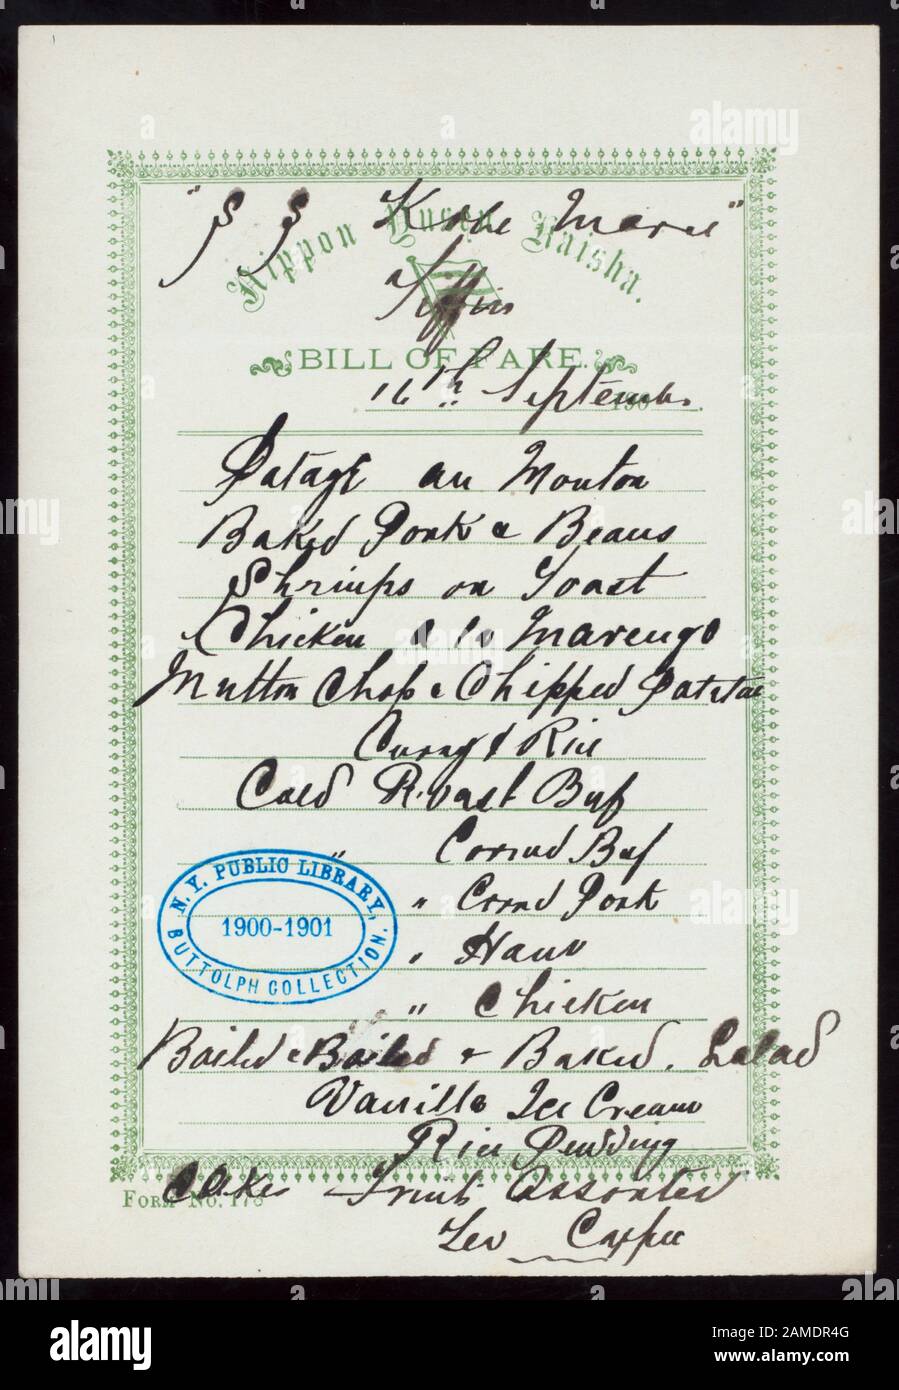 "S S Kobe Maru"
Nippon Yusen Kaisha.
Tiffin
BILL OF FARE.
16th September 190
Potage au Mouton
Baked Pork & Beans
Shrimps on Toast
Chicken a la Marengo
Mutton Chop & Chipped Potatoe
Curry & Rice
Cold Roast Beef
" Corned Beef
" Corned Pork
" Ham
" Chicken
N.Y. PUBLIC LIBRARY,
1900-1901
BUTTOLPH COLLECTION.
Boiled & Boiled & Baked. Salad
Vanilla Ice Cream
Rice Pudding
Cakes Fruits Assorted
FORM NO. 173
Tea Coffee
alamy
alamy
Image ID: 2AMDR4G
www.alamy.com